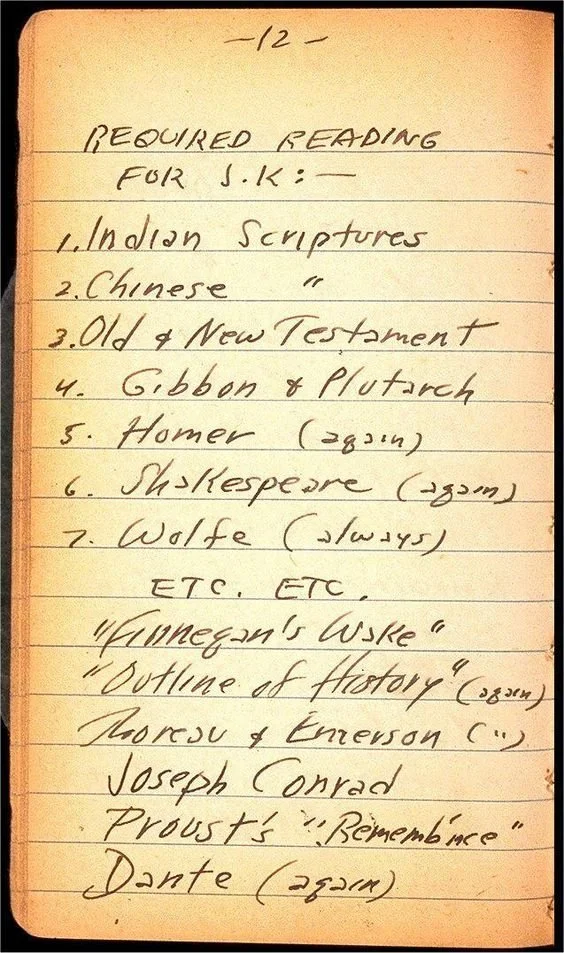 -12-
REQUIRED READING
FOR J.K:—
1. Indian Scriptures
2. Chinese "
3. Old & New Testament
4. Gibbon & Plutarch
5. Homer (again)
6. Shakespeare (again)
7. Wolfe (always)
ETC. ETC.
"Finnegan's Wake"
"Outline of History" (again)
Thoreau & Emerson (")
Joseph Conrad
Proust's "Rememb'nce"
Dante (again)